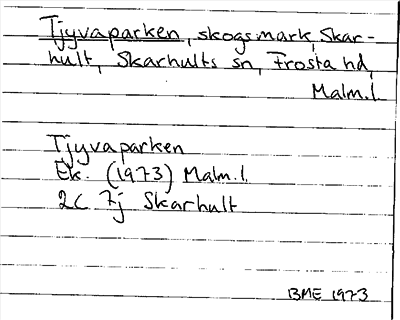 Tjyvaparken, skogsmark, Skar-
hult, Skarhults sn, Frosta hd,
Malm.l.
Tjyvaparken
Ek. (1973) Malm.l.
2C 7j Skarhult
BME 1973